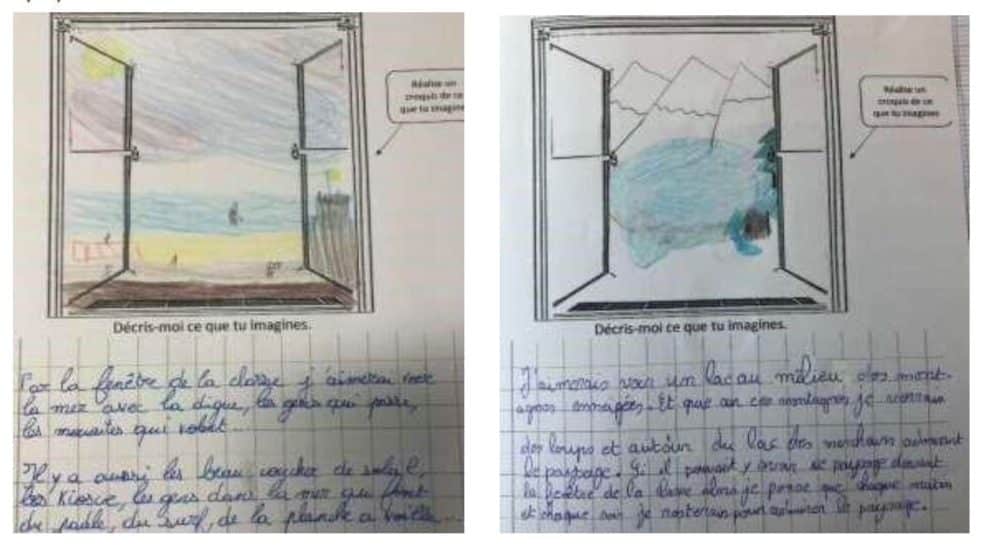 Réalise un
croquis de ce
que tu imagine
Décris-moi ce que tu imagines.
Par la fenêtre de la classe j'aimerai voir
la mer avec la digue, les gens qui passe,
les mouettes qui volent...
Il y a aussi les beau coucher de soleil,
les Kiosce, les gens dans la mer qui font
du padle, du surf, de la planche a voile...
Réalise un
croquis de ce
que tu imagines
Décris-moi ce que tu imagines.
J'aimerais voir un lac au milieu des mont-
agnes enneigées. Et que sur ces montagnes je verrais
des loups et autour du lac des marcheurs admirant
le paysage. Si il pouvait y avoir ce paysage devant
la fenêtre de la classe alors je pense que chaque matin
et chaque soir je resterais pour admirer le paysage.